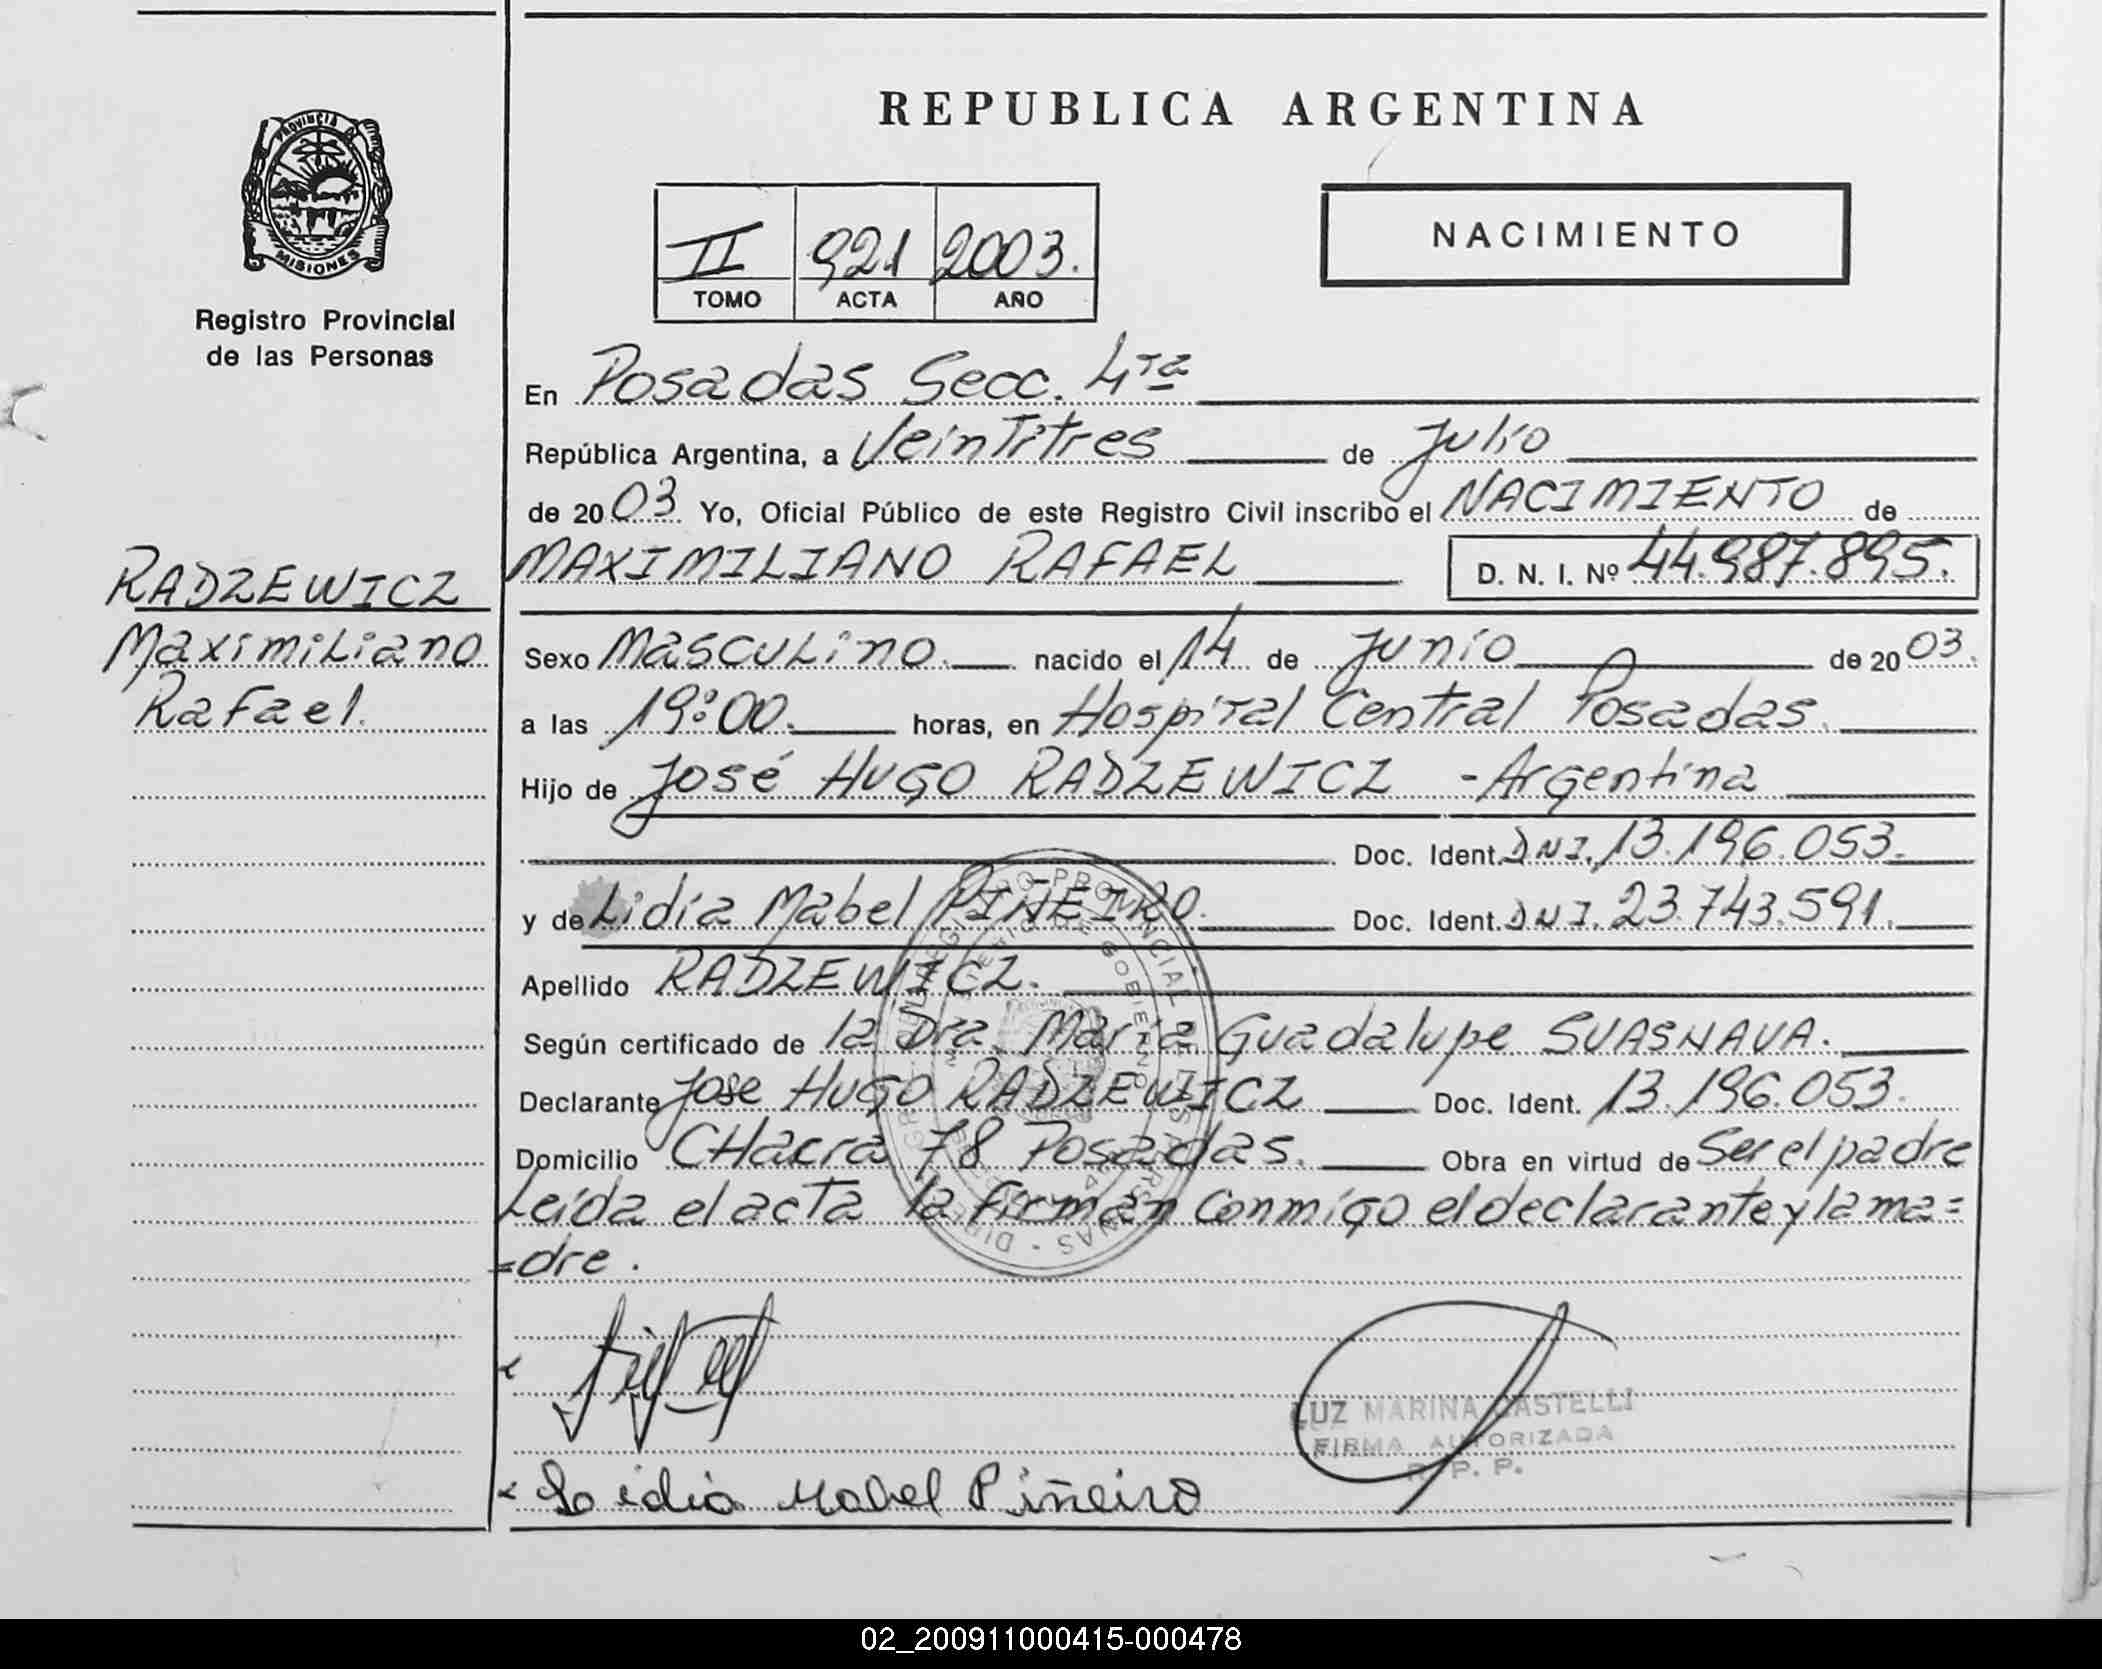 REPUBLICA ARGENTINA
PROVINCIA D MISIONES
Registro Provincial
de las Personas
II 921 2003.
TOMO ACTA AÑO
NACIMIENTO
En Posadas Secc. 4ta
República Argentina, a Veintitres de Julio
de 2003 Yo, Oficial Público de este Registro Civil inscribo el NACIMIENTO de
MAXIMILIANO RAFAEL D. N. I. Nº 44.987.895.
RADZEWICZ
Maximiliano
Rafael.
Sexo Masculino. nacido el 14 de Junio de 2003.
a las 19:00. horas, en Hospital Central Posadas.
Hijo de José HUGO RADZEWICZ - Argentina
Doc. Ident. DNI. 13.196.053.
y de Lidia Mabel PIÑEIRO. Doc. Ident. DNI. 23.743.591.
Apellido RADZEWICZ.
Según certificado de la Dra. Maria Guadalupe SUASNAVA.
Declarante Jose HUGO RADZEWICZ Doc. Ident. 13.196.053.
Domicilio CHacra 78 Posadas. Obra en virtud de Ser el padre
Leida el acta la firman conmigo el declarante y la ma=
=dre.
LUZ MARINA CASTELLI
FIRMA AUTORIZADA
R. P. P.
Lidia Mabel Piñeiro
02_200911000415-000478